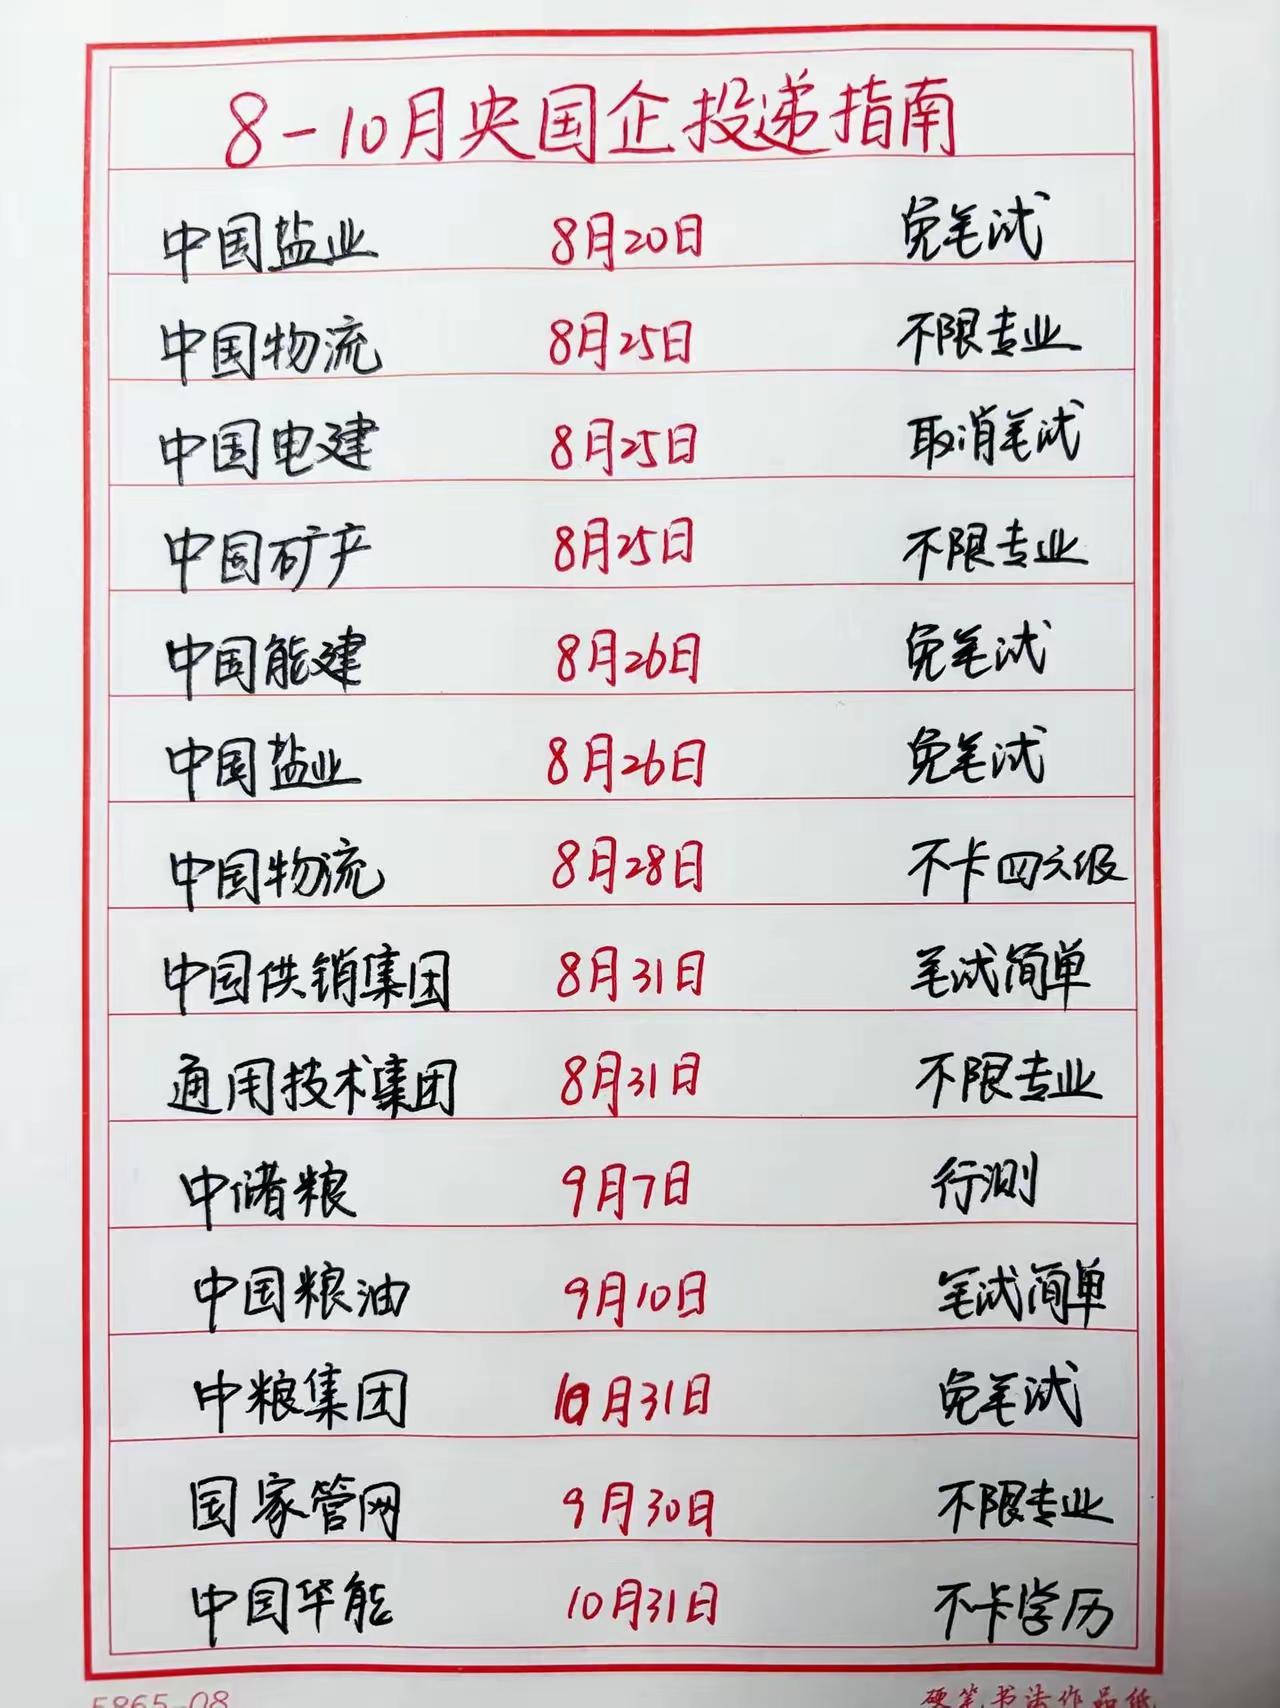 8-10月央国企投递指南
中国盐业 8月20日 免笔试
中国物流 8月25日 不限专业
中国电建 8月25日 取消笔试
中国矿产 8月25日 不限专业
中国能建 8月26日 免笔试
中国盐业 8月26日 免笔试
中国物流 8月28日 不卡四六级
中国供销集团 8月31日 笔试简单
通用技术集团 8月31日 不限专业
中储粮 9月7日 行测
中国粮油 9月10日 笔试简单
中粮集团 10月31日 免笔试
国家管网 9月30日 不限专业
中国华能 10月31日 不卡学历
5865-08 硬笔书法作品纸